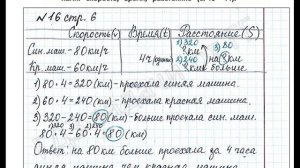 №16 стр. 6
Скорость(v) Время(t) Расстояние(S)
Син.маш.-80км/ч 4ч 1)320 км 3)80
Кр.маш-60км/ч 2)240 км на км больше
1)80·4=320(км)-проехала синяя машина.
2)60·4=240(км)-проехала красная машина.
3)320-240=80(км)-больше проехала син.маш
80·4-60·4=80(км)
Ответ: на 80 км больше проехала за 4 часа
синяя машина чем красная машина